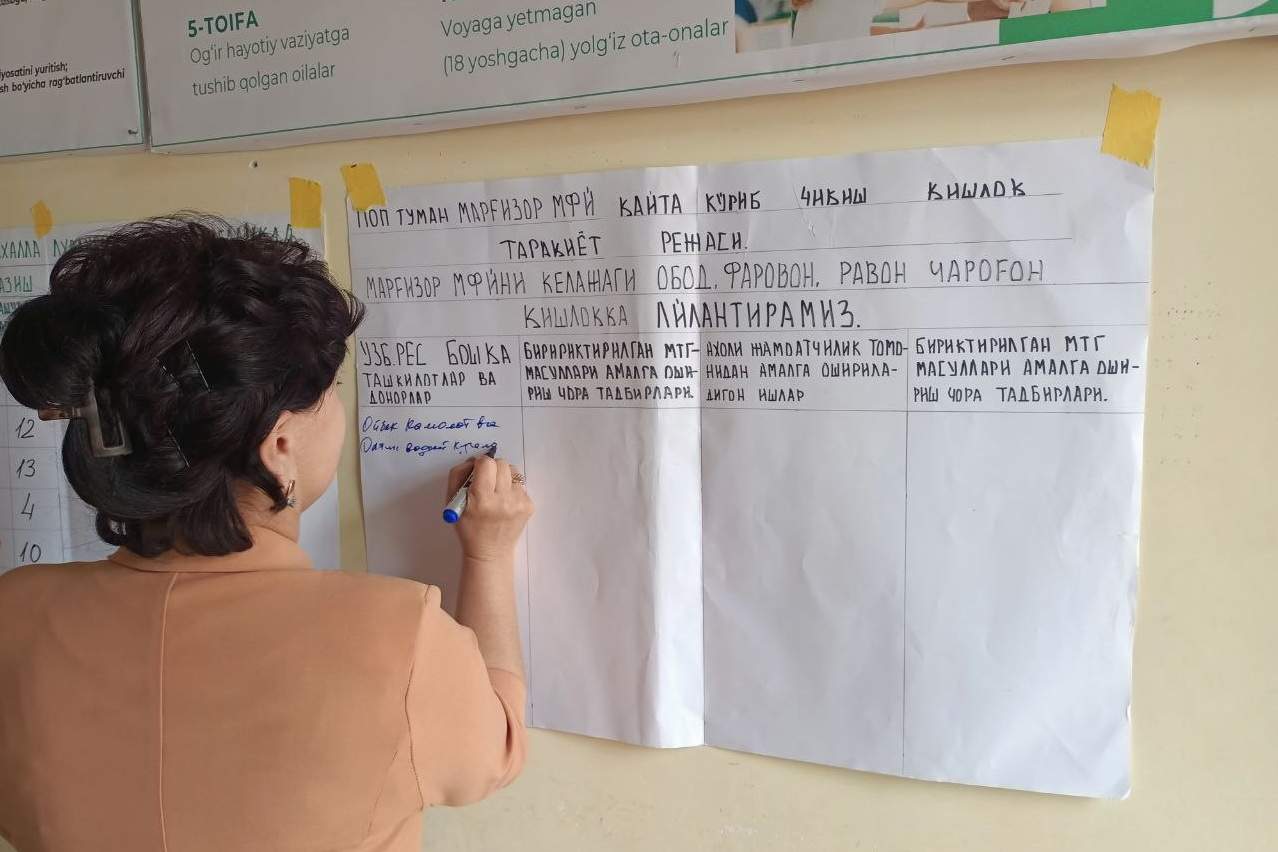 5-TOIFA
Og'ir hayotiy vaziyatga
tushib qolgan oilalar
Voyaga yetmagan
(18 yoshgacha) yolg'iz ota-onalar
iyosatini yuritish;
sh bo'yicha rag'batlantiruvchi
ПОП ТУМАН МАРҒИЗОР МФЙ ҚАЙТА КЎРИБ ЧИҚИШ ҚИШЛОҚ
ТАРАҚИЁТ РЕЖАСИ.
МАРҒИЗОР МФЙНИ КЕЛАЖАГИ ОБОД, ФАРОВОН, РАВОН ЧАРОҒОН
ҚИШЛОККА АЙЛАНТИРАМИЗ.
УЗБ.РЕС БОШКА
ТАШКИЛОТЛАР ВА
ДОНОРЛАР
БИРИРИКТИРИЛГАН МТГ-
МАСУЛЛАРИ АМАЛГА ОШИ-
РИШ ЧОРА ТАДБИРЛАРИ.
АХОЛИ ЖАМОАТЧИЛИК ТОМО-
НИДАН АМАЛГА ОШИРИЛА-
ДИГОН ИШЛАР
БИРИКТИРИЛГАН МТГ
МАСУЛЛАРИ АМАЛГА ОШИ-
РИШ ЧОРА ТАДБИРЛАРИ.
Ойбек Камолот ва
водий
ХАЛЛА
АЗИШ
12
13
4
10